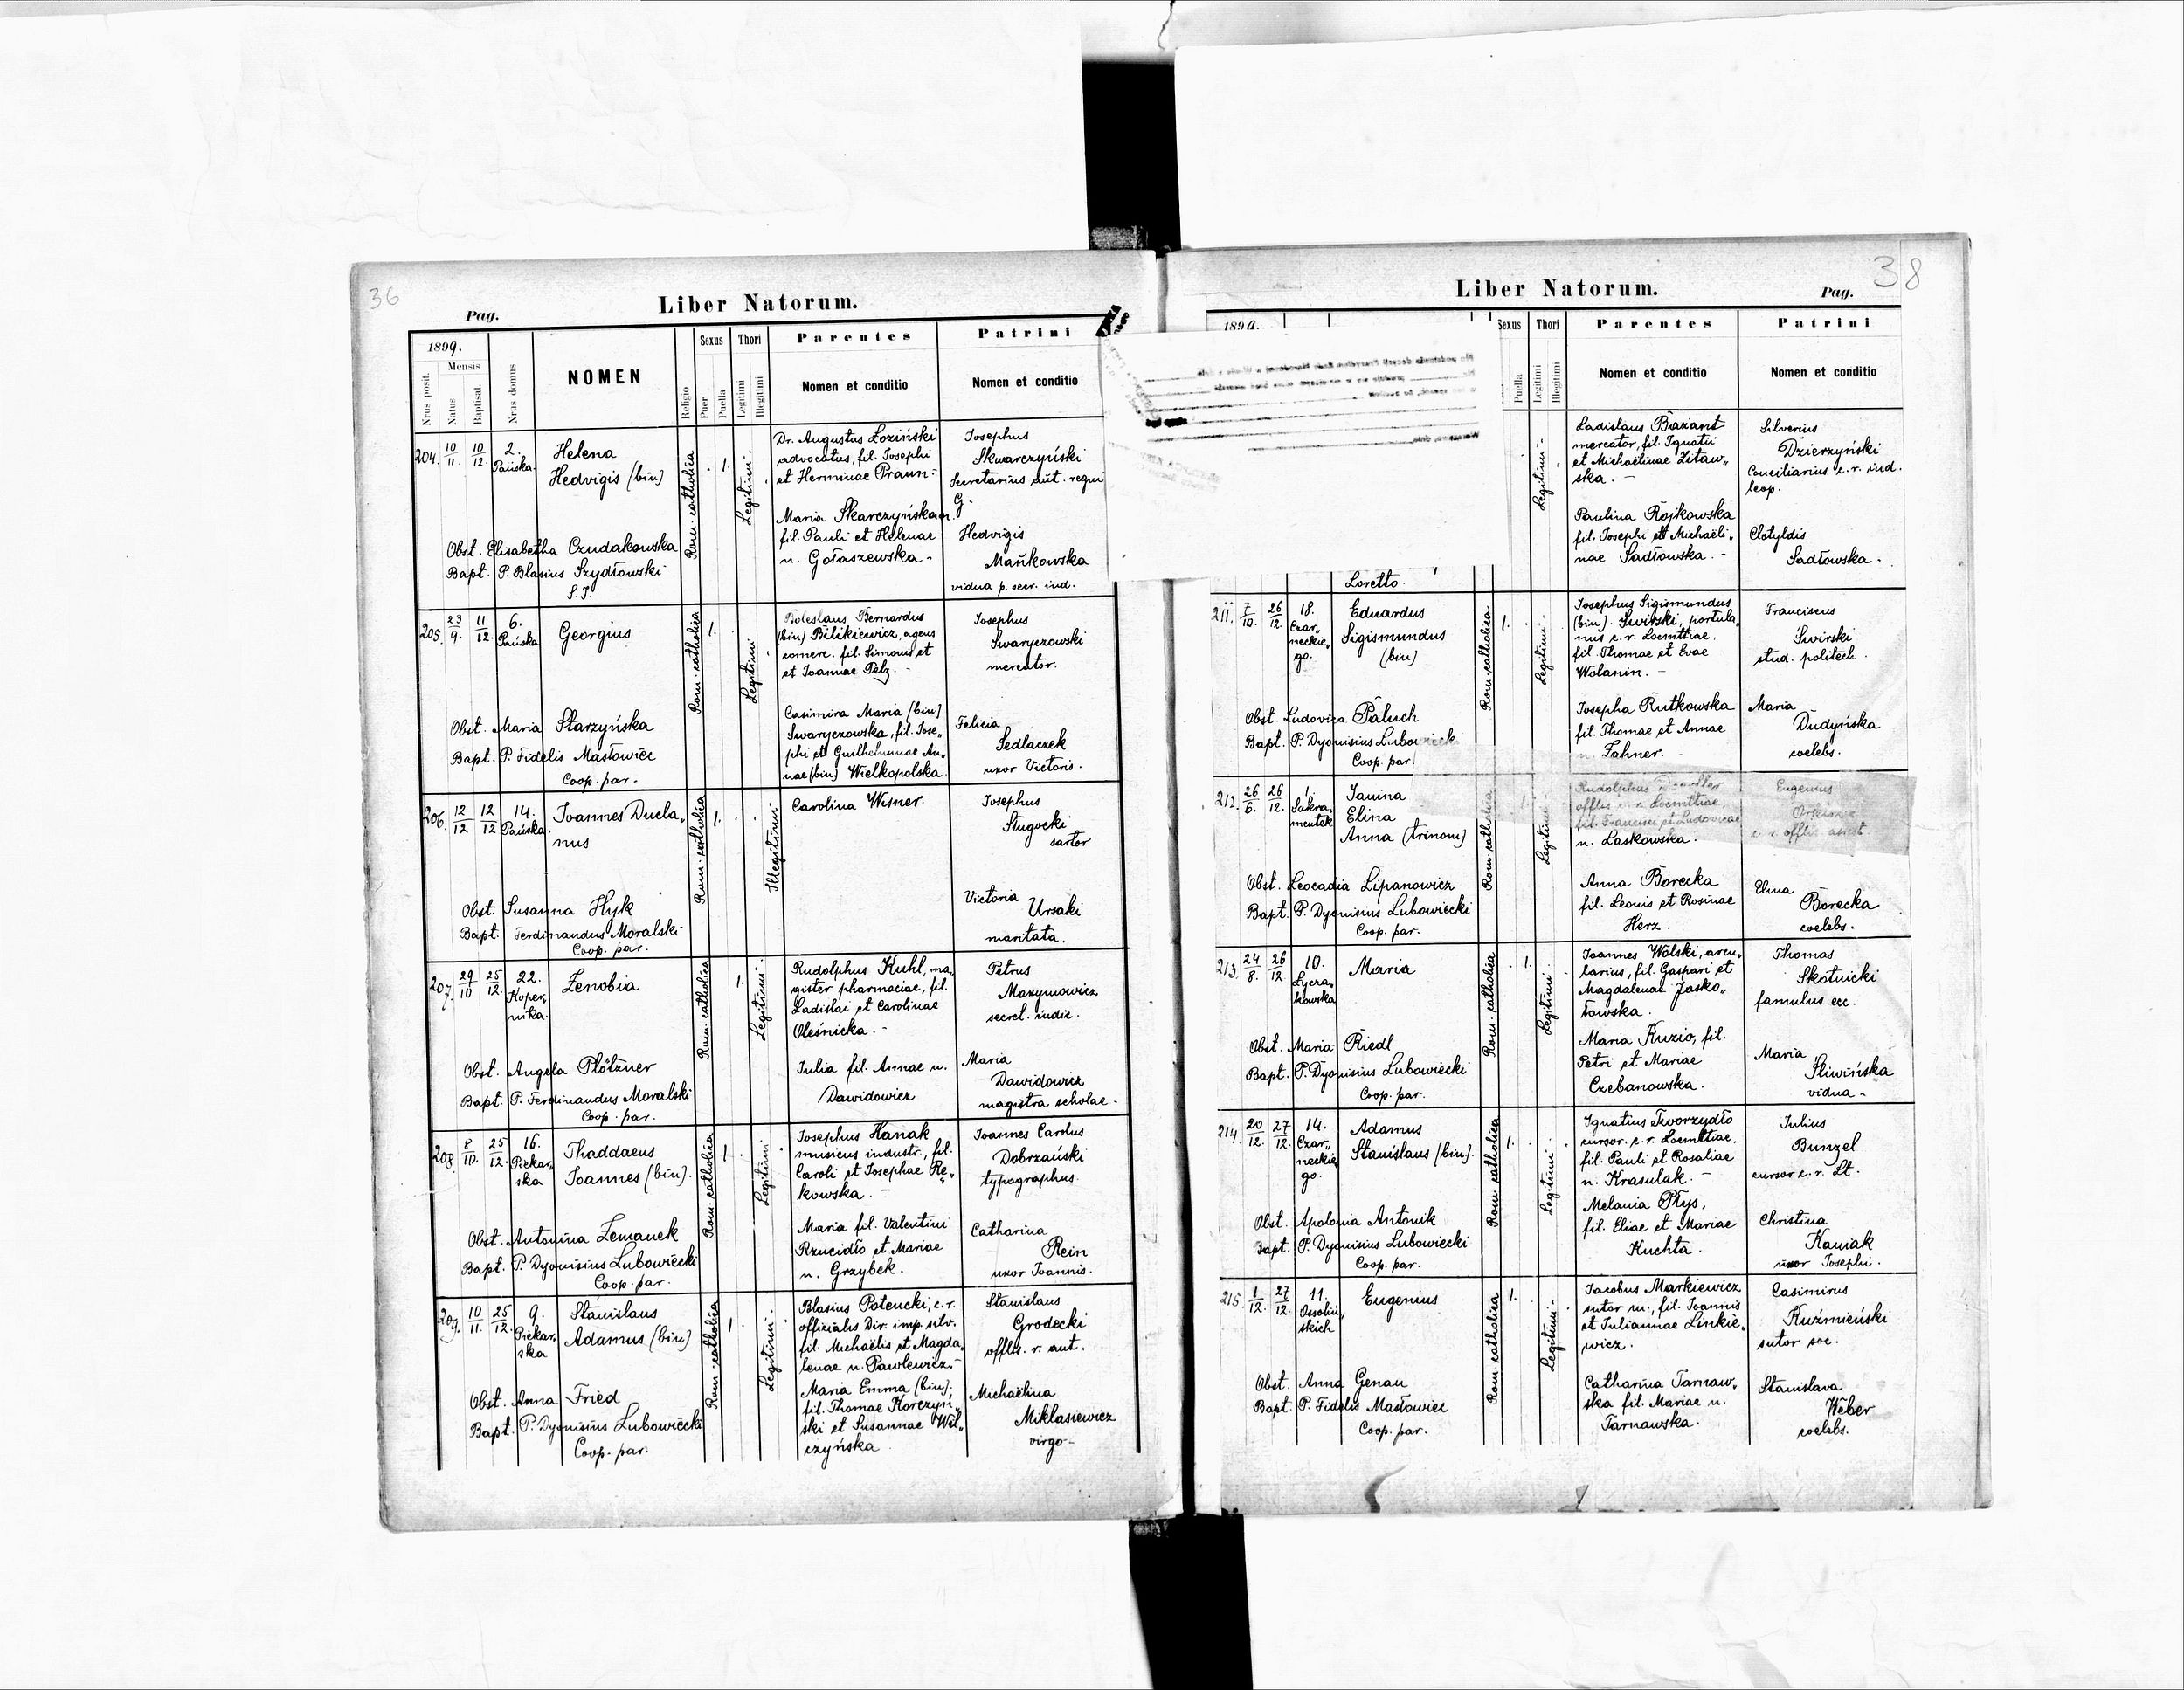 36
Pag.
Liber Natorum.
1899.
Mensis
Nrus posit.
Natus
Baptisat.
Nrus domus
NOMEN
Religio
Sexus
Puer
Puella
Thori
Legitimi
Illegitimi
Parentes
Nomen et conditio
Patrini
Nomen et conditio
204. 10/11. 10/12. 2. Pańska.
Helena
Hedvigis (bin)
Obst. Elisabetha Czudakowska
Bapt. P. Blasius Szydłowski
S. J.
Rom. catholica
1.
Legitimi
Dr. Augustus Łoziński
advocatus, fil. Josephi
et Herminae Praun-
Maria Skarczyńska
fil. Pauli et Helenae
n. Gołaszewska -
Josephus
Skwarczyński
Secretarius aut. regni
G.
Hedvigis
Mańkowska
vidua p. secr. ind.
205. 23/9. 11/12. 6. Pańska
Georgius
Obst. Maria Starzyńska
Bapt. P. Fidelis Masłowiec
Coop. par.
Rom. catholica
1.
Legitimi
Boleslaus Bernardus
(bin) Bilikiewicz, agens
comerc. fil. Simonis et
et Joannae Pelz. -
Casimira Maria (bin)
Swaryczowska, fil. Jose„
phi et Guilhelminae An„
nae (bin) Wielkopolska.
Josephus
Swaryczowski
mercator.
Felicia
Sedlaczek
uxor Victoris.
206. 12/12 12/12 14. Pańska.
Joannes Ducla„
nus
Obst. Susanna Hyk
Bapt. Ferdinandus Moralski
Coop. par.
Rom. catholica
1.
Illegitimi
Carolina Wisner.
Josephus
Sługocki
sartor
Victoria
Ursaki
maritata.
207. 29/10 25/12. 22. Koper„
nika.
Zenobia
Obst. Angela Plötzner
Bapt. P. Ferdinandus Moralski
Coop. par.
Rom. catholica
1.
Legitimi
Rudolphus Kuhl, ma„
gister pharmaciae, fil.
Ladislai et Carolinae
Oleśnicka. -
Julia fil. Annae n.
Dawidowicz
Petrus
Maxymowicz
secret. iudic.
Maria
Dawidowicz
magistra scholae -
208. 8/10. 25/12. 16. Piekar„
ska
Thaddaeus
Joannes (bin).
Obst. Antonina Zemanek
Bapt. P. Dyonisius Lubowiecki
Coop. par.
Rom. catholica
1.
Legitimi
Josephus Hanak
musicus industr., fil.
Caroli et Josephae Rę„
kowska. -
Maria fil. Valentini
Rzucidło et Mariae
n. Grzybek.
Joannes Carolus
Dobrzański
typographus.
Catharina
Rein
uxor Joannis.
209. 10/11. 25/12. 9. Piekar„
ska
Stanislaus
Adamus (bin)
Obst. Anna Fried
Bapt. P. Dyonisius Lubowiecki
Coop. par.
Rom. catholica
1.
Legitimi
Blasius Potencki, c. r.
offizialis Dir. imp. silv.
fil. Michaëlis et Magda„
lenae n. Pawlewicz. -
Maria Emma (bin),
fil. Thomae Korczyń„
ski et Susannae Wil„
czyńska.
Stanislaus
Grodecki
offlis. r. aut.
Michaëlina
Miklasiewicz
virgo -
38
Liber Natorum.
Pag.
1899.
Sexus
Puella
Thori
Legitimi
Illegitimi
Parentes
Nomen et conditio
Patrini
Nomen et conditio
Loretto.
Legitimi
Ladislaus Bażant
mercator, fil. Ignatii
et Michaëlinae Zitaw„
ska. -
Paulina Rojkowska
fil. Josephi et Michaëli„
nae Sadłowska. -
Silverius
Dzierzyński
Conciliarius c. r. iud.
leop.
Clotyldis
Sadłowska -
211. 7/10. 26/12. 18. Czar„
neckie„
go.
Eduardus
Sigismundus
(bin)
Obst. Ludovica Paluch
Bapt. P. Dyonisius Lubowiecki
Coop. par.
Rom. catholica
1.
Legitimi
Josephus Sigismundus
(bin) Świrski, portula„
nus c. r. Locmttiae.
fil. Thomae et Evae
Wolanin. -
Josepha Rutkowska
fil. Thomae et Annae
n. Fahner. -
Franciscus
Świrski
stud. politech.
Maria
Dudyńska
coelebs.
212. 26/6. 26/12. 1. Sakra„
mentek
Janina
Elina
Anna (trinom)
Obst. Leocadia Lipanowicz
Bapt. P. Dyonisius Lubowiecki
Coop. par.
Rom. catholica
1.
Legitimi
Rudolphus
offlis c. r. Locmttiae,
fil. Francisci et Ludovicae
n. Laskowska.
Anna Borecka
fil. Leonis et Rosinae
Herz.
Eugenius
c. r. offlis asist.
Elina
Borecka
coelebs.
213. 24/8. 26/12. 10. Łycza„
kowska
Maria
Obst. Maria Riedl
Bapt. P. Dyonisius Lubowiecki
Coop. par.
Rom. catholica
1.
Legitimi
Joannes Wolski, arcu„
larius, fil. Gaspari et
Magdalenae Jasko„
łowska.
Maria Kuzio, fil.
Petri et Mariae
Czebanowska.
Thomas
Skotnicki
famulus ecc.
Maria
Śliwińska
vidua -
214. 20/12. 27/12. 14. Czar„
neckie„
go.
Adamus
Stanislaus (bin).
Obst. Apolonia Antonik
Bapt. P. Dyonisius Lubowiecki
Coop. par.
Rom. catholica
1.
Legitimi
Ignatius Tworzydło
cursor. c. r. Locmttiae.
fil. Pauli et Rosaliae
n. Krasulak. -
Melania Płys,
fil. Eliae et Mariae
Kuchta.
Julius
Bunzel
cursor c. r. Lt.
Christina
Kaniak
uxor Josephi.
215. 1/12. 27/12. 11. Ossoliń„
skich
Eugenius
Obst. Anna Genau
Bapt. P. Fidelis Masłowiec
Coop. par.
Rom. catholica
1.
Legitimi
Jacobus Markiewicz
sutor m., fil. Joannis
et Juliannae Linkie„
wicz.
Catharina Tarnaw„
ska fil. Mariae n.
Tarnawska.
Casimirus
Kuźmieński
sutor soc.
Stanislava
Weber
coelebs.